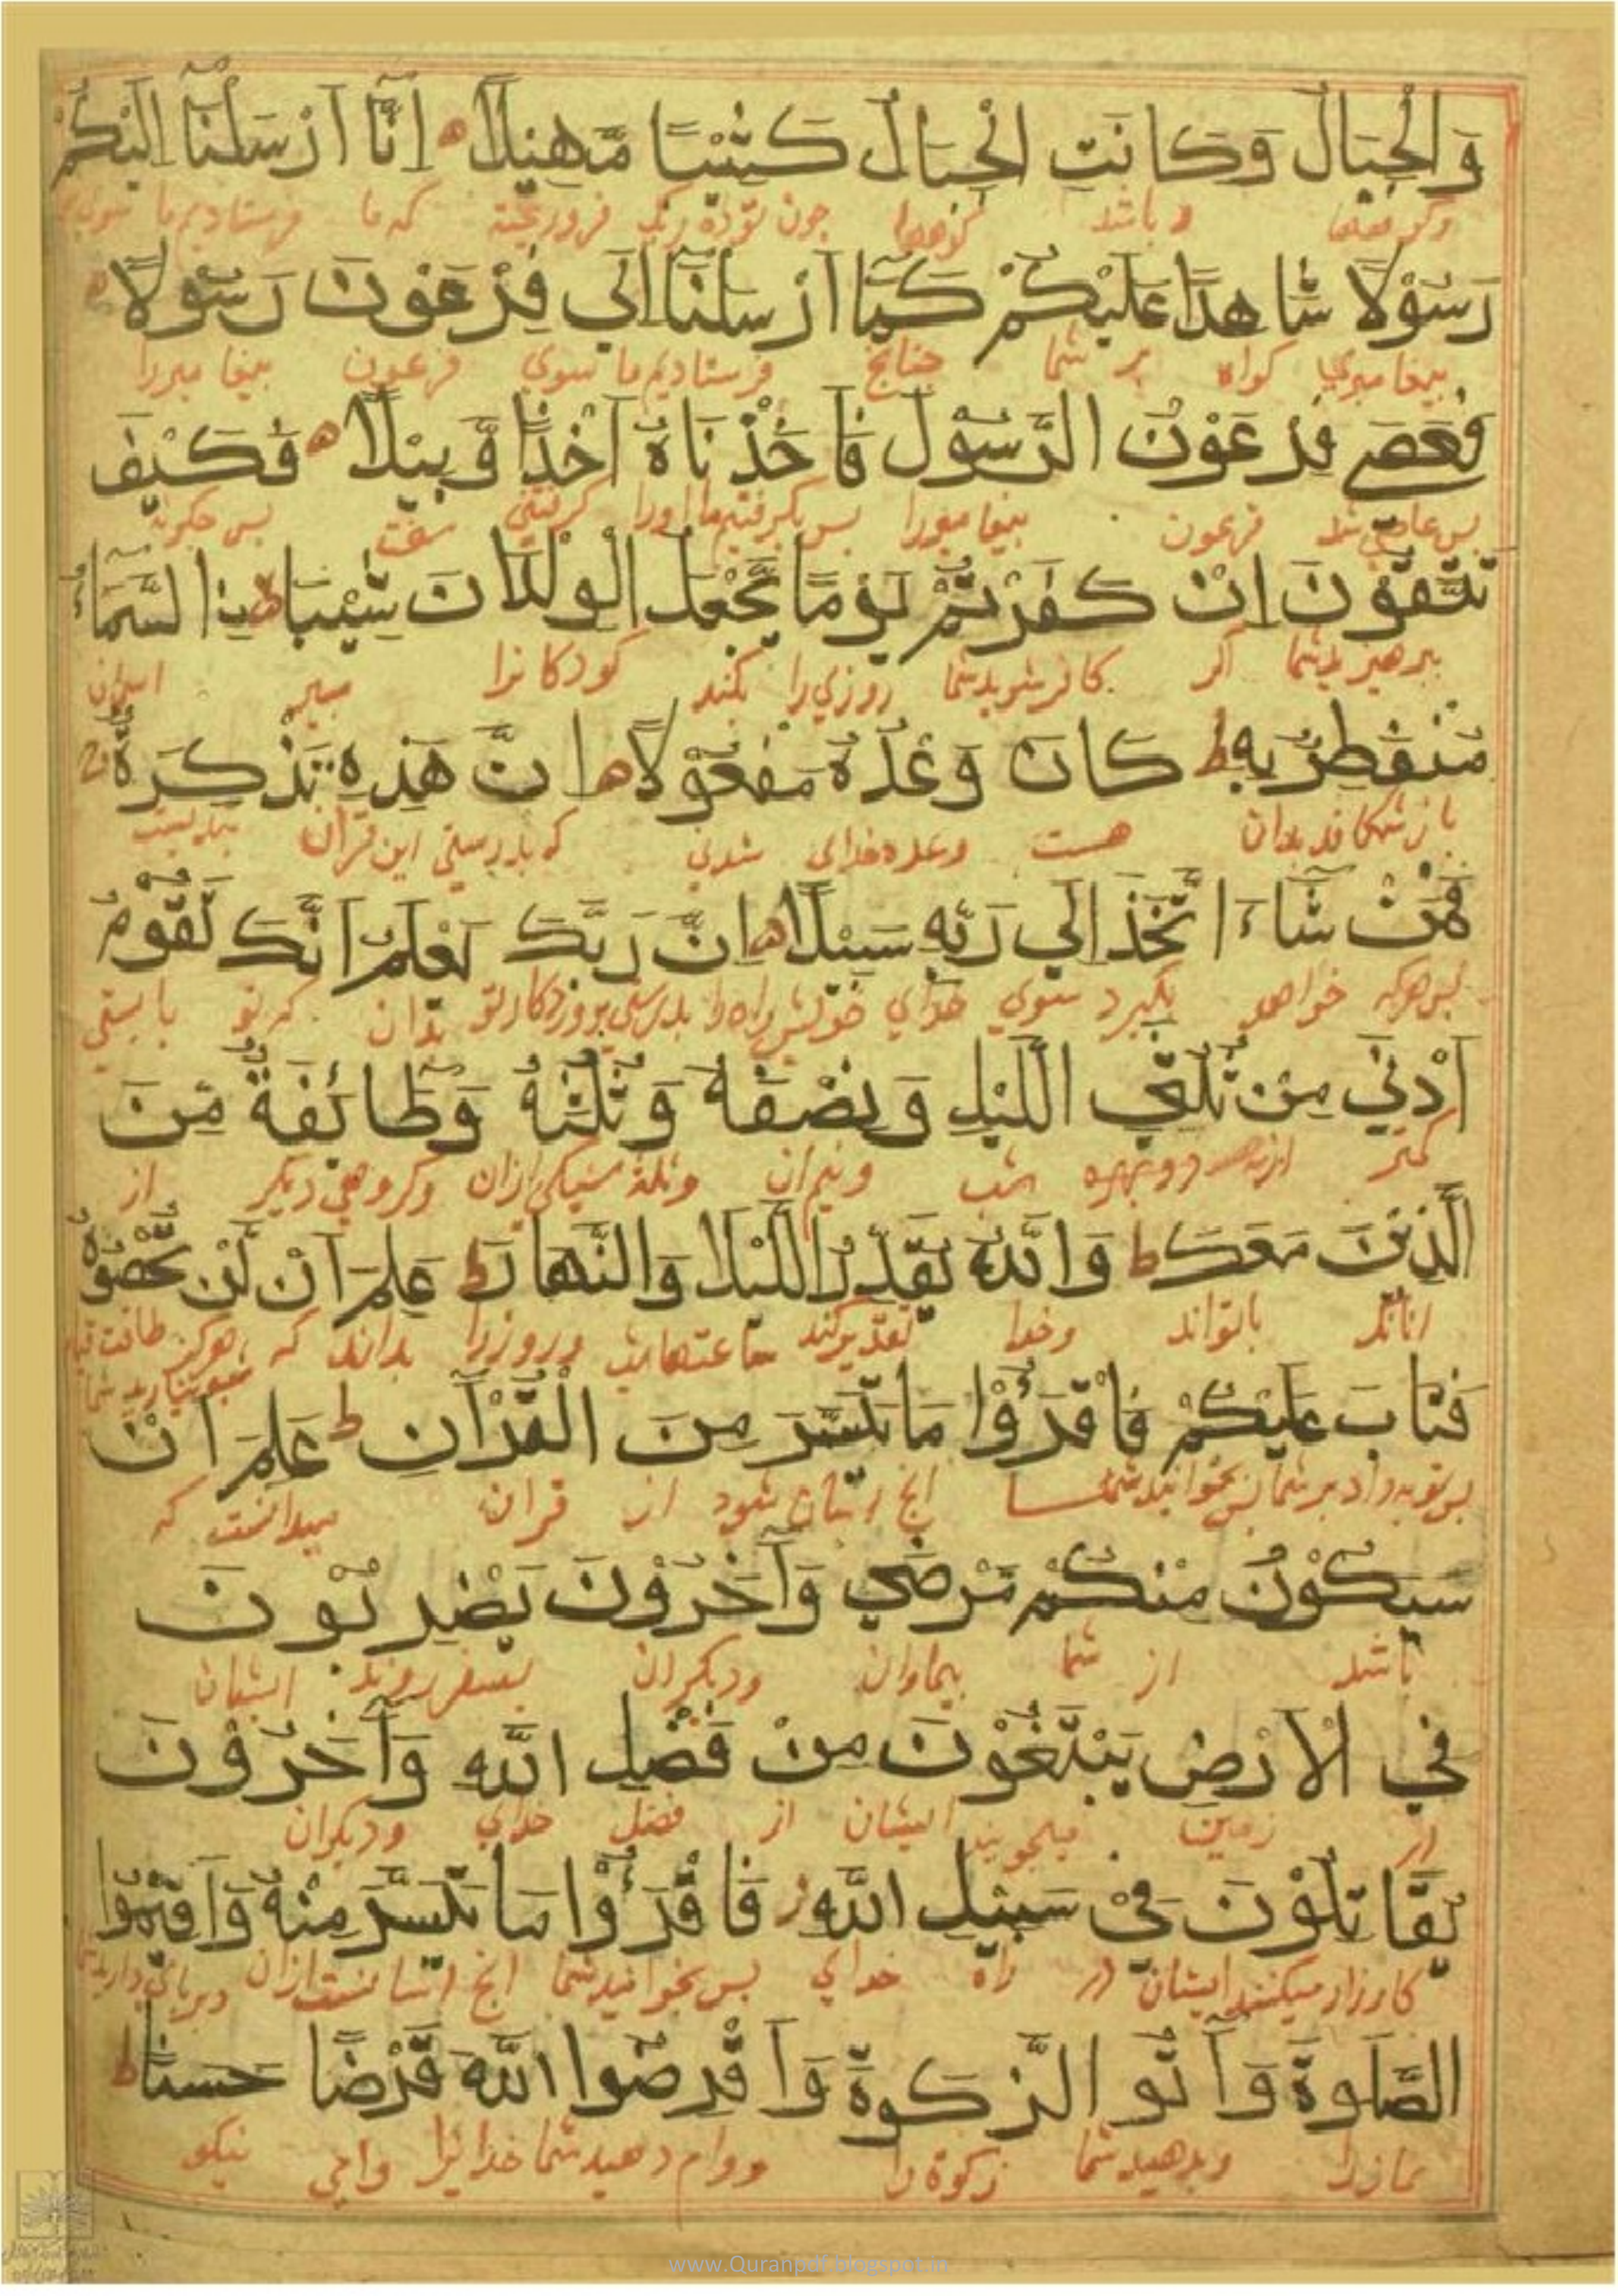 وَالْجِبَالُ وَكَانَتِ الْجِبَالُ كَثِيْبًا مَّهِيْلًا ه اِنَّآ اَرْسَلْنَآ اِلَيْكُمْ
و باشد کوهها چون توده ریک فروریخته که ما فرستادیم ما
رَسُوْلًا شَاهِدًا عَلَيْكُمْ كَمَآ اَرْسَلْنَآ اِلَي فِرْعَوْنَ رَسُوْلًا ه
پیغامبری کواه بر شما چنانچ فرستادیم ما سوی فرعون پیغامبررا
فَعَصَي فِرْعَوْنُ الرَّسُوْلَ فَاَخَذْنَاهُ اَخْذًا وَّبِيْلًا ه فَكَيْفَ
بس عاصی شد فرعون پیغامبررا بس بکرفتیم ما اورا کرفتنی سخت بس چکونه
تَتَّقُوْنَ اِنْ كَفَرْتُمْ يَوْمًا يَّجْعَلُ الْوِلْدَانَ شِيْبَا ه نِ السَّمَآءُ
برهیزید شما اکر کافر شوید شما روزی را بکند کودکانرا اسمان
مُنْفَطِرٌ بِهٖ ط كَانَ وَعْدُهٗ مَفْعُوْلًا ه اِنَّ هَذِهٖ تَذْكِرَةٌ ج
بازشکافد بدان هست وعده خدای شدنی که بدرستی این قران
فَمَنْ شَآءَ اتَّخَذَ اِلَي رَبِّهٖ سَبِيْلًا ه اِنَّ رَبَّكَ يَعْلَمُ اَنَّكَ تَقُوْمُ
بس هرکه خواهد بکیرد سوی خدای خویش راه را بدرستی پروردکار تو که تو
اَدْنَي مِنْ ثُلُثَيِ اللَّيْلِ وَنِصْفَهٗ وَثُلُثَهٗ وَطَآئِفَةٌ مِّنَ
کمتر شب ونیم ان وکروهی دیکر از
الَّذِيْنَ مَعَكَ ط وَاللّٰهُ يُقَدِّرُ اللَّيْلَ وَالنَّهَارَ ط عَلِمَ اَنْ لَّنْ تُحْصُوْهُ
انانکه باتواند وخدا تقدیر کند ساعتهای شب وروزرا بداند که هرکز طاقت
فَتَابَ عَلَيْكُمْ فَاقْرَءُوْا مَا تَيَسَّرَ مِنَ الْقُرْآنِ ط عَلِمَ اَنْ
بس توبه داد بر شما بس بخوانید شما انچ اسان شود از قران که
سَيَكُوْنُ مِنْكُمْ مَرْضَي وَآخَرُوْنَ يَضْرِبُوْنَ
باشد از شما بیماران ودیکران بسفر روند ایشان
فِي الْاَرْضِ يَبْتَغُوْنَ مِنْ فَضْلِ اللّٰهِ وَآخَرُوْنَ
در زمین میجویند ایشان از فضل خدای ودیکران
يُقَاتِلُوْنَ فِيْ سَبِيْلِ اللّٰهِ ز فَاقْرَءُوْا مَا تَيَسَّرَ مِنْهُ وَاَقِيْمُوا
کارزار میکنند ایشان در راه خدای بس بخوانید شما انچ اسانست ازان
الصَّلَوةَ وَآتُوا الزَّكَوةَ وَاَقْرِضُوا اللّٰهَ قَرْضًا حَسَنًا ط
نمازرا وبدهید شما زکوة را ووام دهید شما خدایرا وامی نیکو
www.Quranpdf.blogspot.in